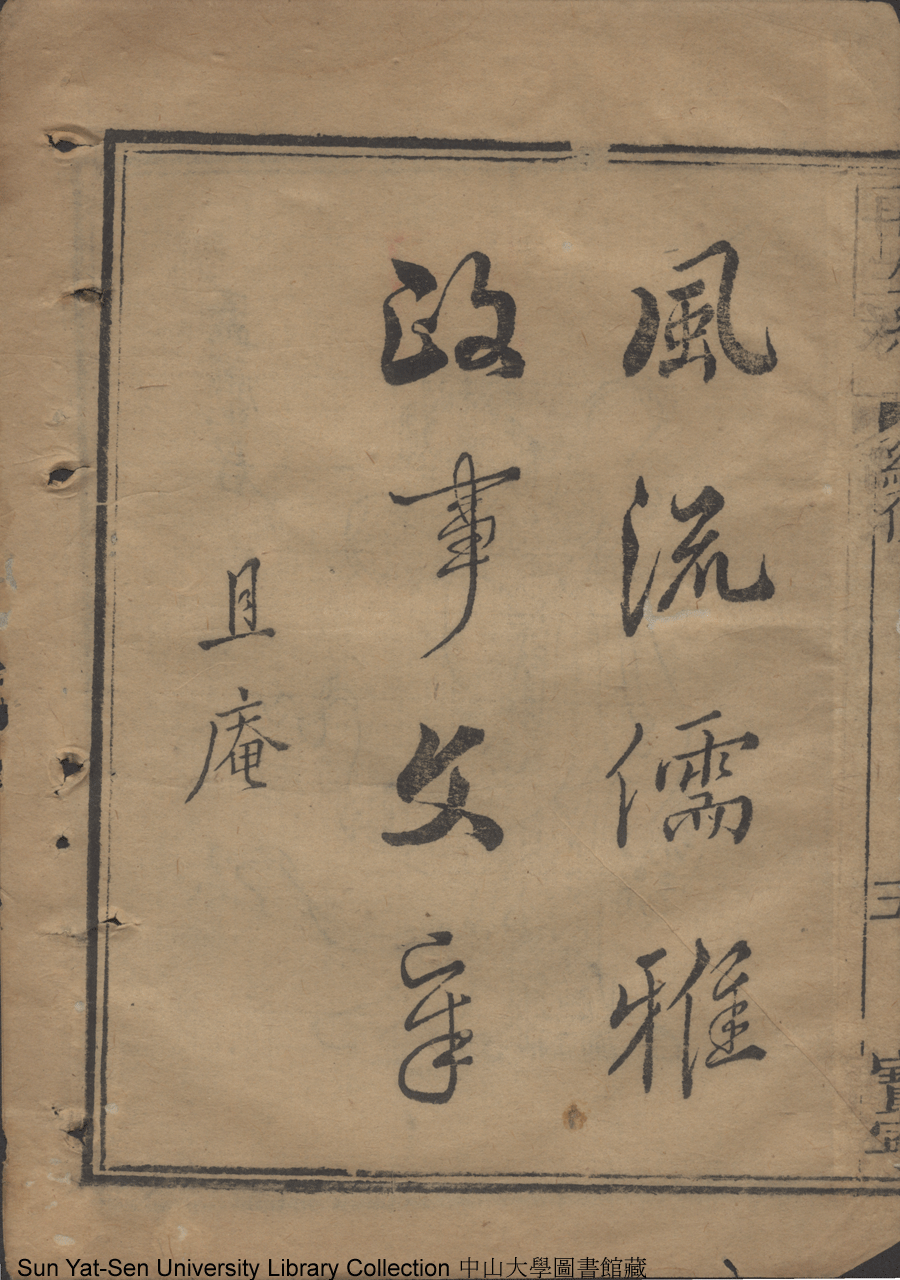 風流儒雅
政事文章
且庵
Sun Yat-Sen University Library Collection 中山大學圖書館藏